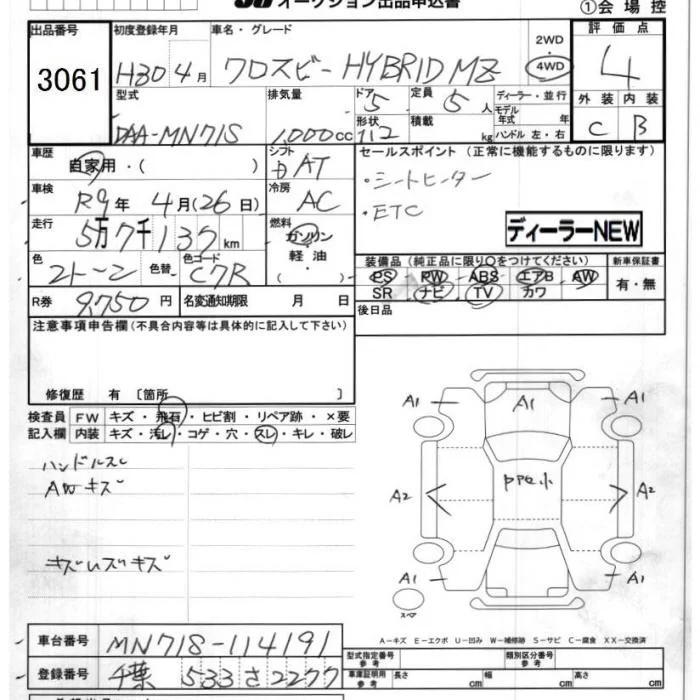 オークション出品申込書
①会場控
出品番号
3061
初度登録年月
H30 4月
車名・グレード
クロスビー HYBRID MZ
2WD
・
4WD
評価点
4
型式
DAA-MN71S
排気量
1,000cc
ドア
5
定員
5人
ディーラー・並行
モデル年式 年
形状
112
積載
kg
ハンドル 左・右
外装 内装
C B
車歴
自家用・( )
シフト
AT
セールスポイント (正常に機能するものに限ります)
・シートヒーター
・ETC
ディーラーNEW
車検
R9年 4月(26日)
冷房
AC
走行
5万7千137km
燃料
ガソリン
軽油
( )
色
2トーン
色替
色コード
C7R
装備品(純正品に限り○をつけてください)
PS PW ABS エアB AW
SR ナビ TV カワ
新車保証書
有・無
R券
9,750円
名変通知期限 月 日
後日品
注意事項申告欄(不具合内容等は具体的に記入して下さい)
修復歴 有 〔箇所 〕
検査員
記入欄
FW キズ・飛石・ヒビ割・リペア跡・×要
内装 キズ・汚レ・コゲ・穴・スレ・キレ・破レ
ハンドルスレ
AWキズ
A1 A1 A1
A2 A2
A1 A1
スペア
A-キズ E-エクボ U-凹み W-補修跡 S-サビ C-腐食 XX-交換済
車台番号
MN71S-114191
登録番号
千葉 533 さ 2277
型式指定番号
参考
類別区分番号
参考
車庫証明用
参考
長さ cm 幅 cm 高さ cm